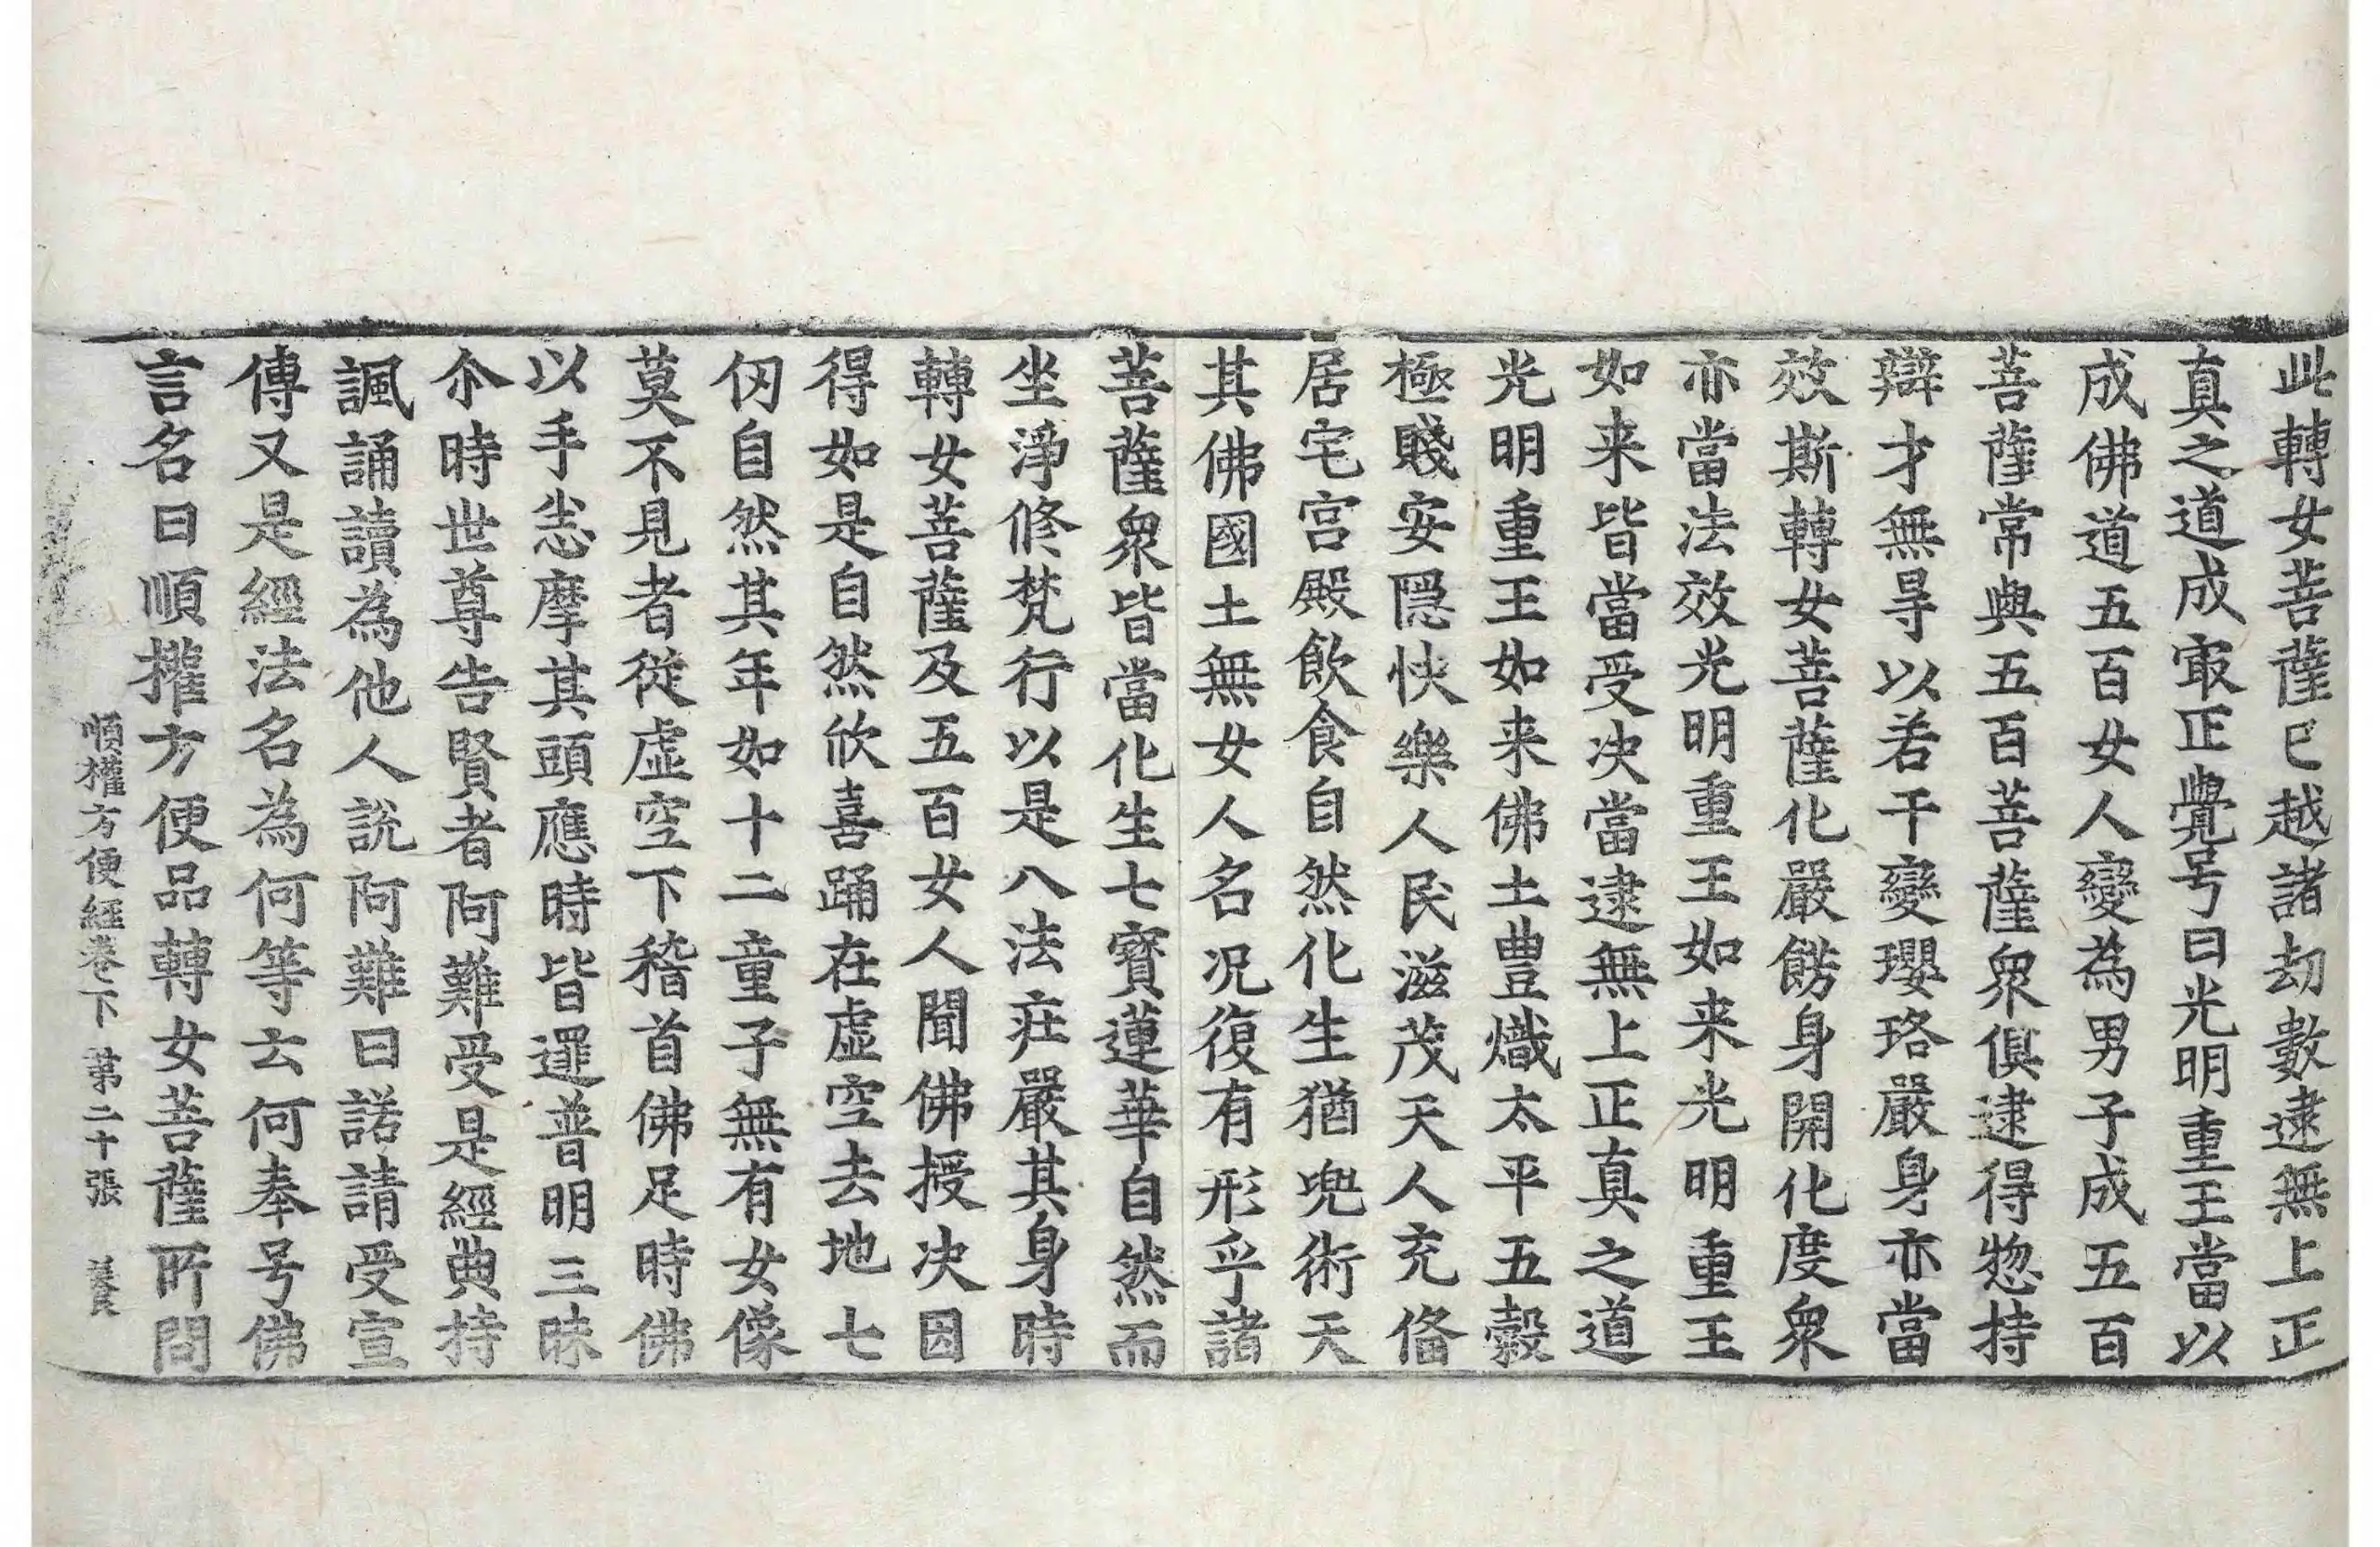 此轉女菩薩已越諸劫數逮無上正
真之道成㝡正覺号曰光明重王當以
成佛道五百女人變為男子成五百
菩薩常與五百菩薩衆俱逮得惣持
辯才無㝵以若干變瓔珞嚴身亦當
效斯轉女菩薩化嚴餝身開化度衆
亦當法效光明重王如来光明重王
如来皆當受决當逮無上正真之道
光明重王如来佛土豊熾太平五穀
極賤安隠快樂人民滋茂天人充俻
居宅宫殿飲食自然化生猶兜術天
其佛國土無女人名况復有形乎諸
菩薩衆皆當化生七寳蓮華自然而
坐淨修梵行以是八法莊嚴其身時
轉女菩薩及五百女人聞佛授决因
得如是自然欣喜踊在虚空去地七
仞自然其年如十二童子無有女像
莫不見者從虚空下稽首佛足時佛
以手𢘻摩其頭應時皆逮普明三昧
尒時世尊告賢者阿難受是經典持
諷誦讀為他人說阿難曰諾請受宣
傳又是經法名為何等云何奉号佛
言名曰順權方便品轉女菩薩所問
順權方便經卷下 第二十張 養